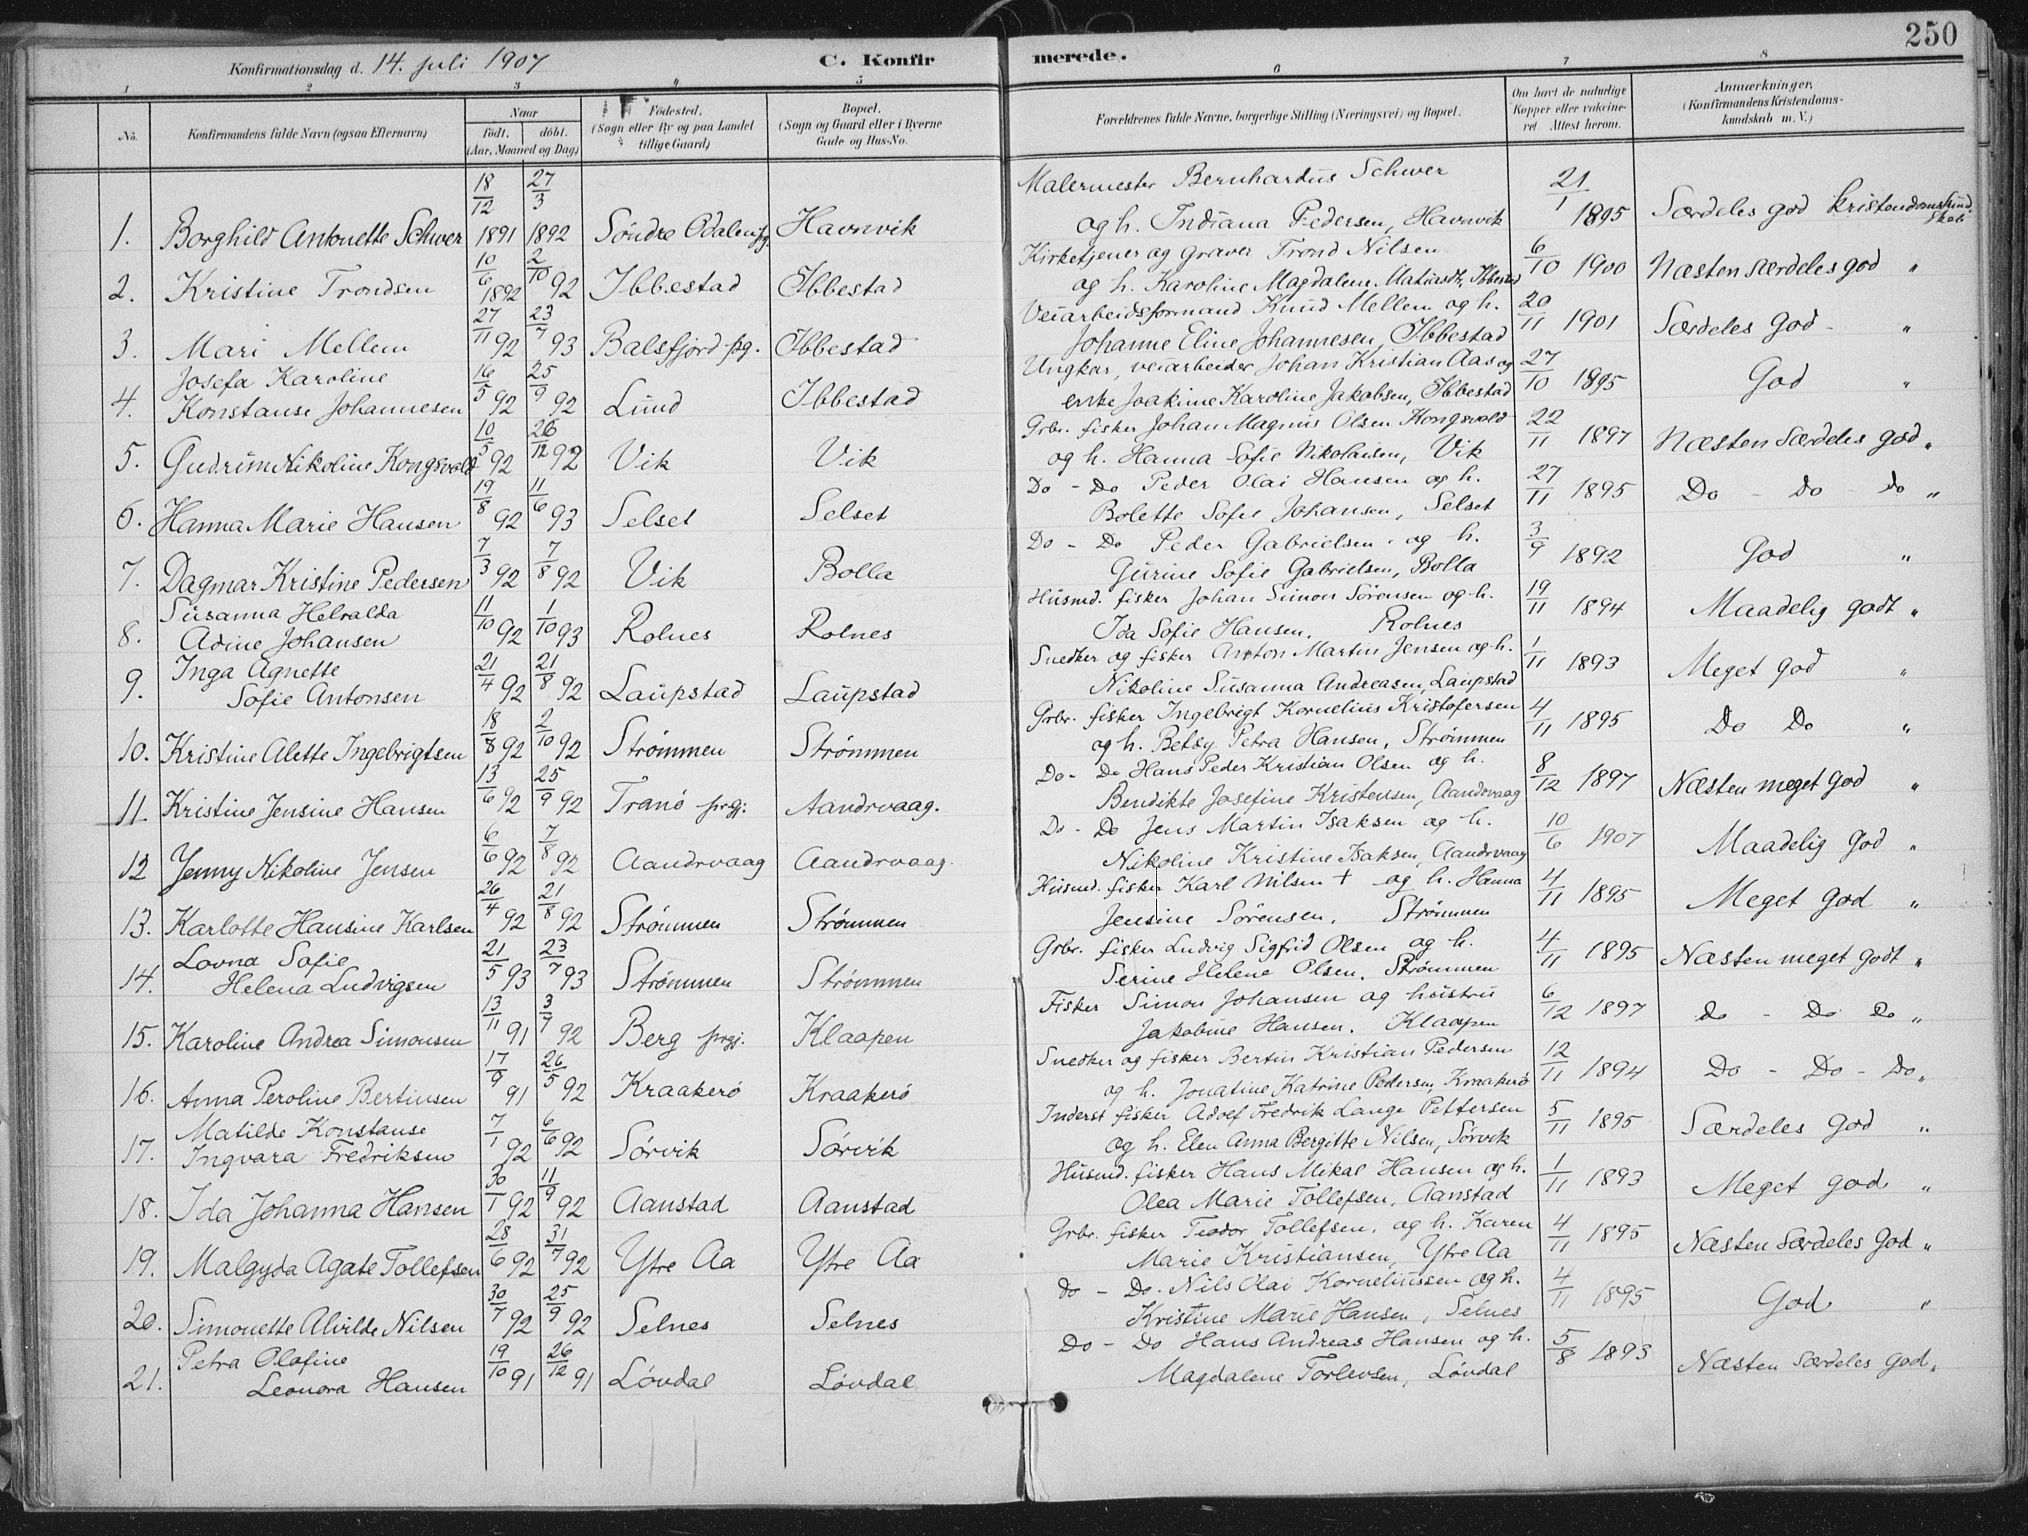 250
Konfirmationsdag d. 14. juli 1907 C. Konfir merede.
1 2 3 4 5 6 7 8
No. Konfirmandens fulde Navn (ogsaa Efternavn) Naar født, døbt. (Aar, Maaned og Dag) Fødested. (Sogn eller By og paa Landet tillige Gaard) Bopæl. (Sogn og Gaard eller i Byerne Gade og Hus-No. Forældrenes fulde Navne, borgerlige Stilling (Næringsvei) og Bopæl. Om havt de naturlige Kopper eller vakcineret Attest herom. Anmærkninger. (Konfirmandens Kristendomskundskab m. V.)
1. Borghild Antonette Schwer 18/12 1891 27/3 1892 Söndre Odalen pg. Havnvik Malermester Bernhardus Schwer
og h. Indiana Pedersen, Havnvik 21/1 1895 Særdeles god kristendomskundskab
2. Kristine Trondsen 10/6 1892 2/10 92 Ibbestad Ibbestad Kirketjener og graver Trond Nilsen
og h. Karoline Magdalene Matiasdtr, Ibbestad 6/10 1900 Næsten særdeles god "
3. Mari Mellem 27/11 92 23/7 93 Balsfjord pg. Ibbestad Veiarbeidsformand Knud Mellem og h.
Johanne Eline Johannesen, Ibbestad 20/11 1901 Særdeles God - "
4. Josefa Karoline
Konstanse Johannesen 16/5 92 25/9 92 Lund Ibbestad Ungkar, veiarbeider Johan Kristian Aas og
enke Joakime Karoline Jakobsen, Ibbestad 27/10 1895 God "
5. Gudrun Nikoline Kongsvold 10/5 92 26/12 92 Vik Vik Grbr. fisker Johan Magnus Olsen Kongsvold
og h. Hanna Sofie Nikolaisen, Vik 22/11 1897 Næsten Særdeles god "
6. Hanna Marie Hansen 19/8 92 11/6 93 Selset Selset Do - Do Peder Olai Hansen og h.
Bolette Sofie Johansen, Selset 27/11 1895 Do - do - do "
7. Dagmar Kristine Pedersen 7/3 92 7/8 92 Vik Bolla Do - Do Peder Gabrielsen og h.
Gurine Sofie Gabrielsen, Bolla 3/9 1892 God "
8. Susanna Helvalda
Adine Johansen 11/10 92 1/10 93 Rolnes Rolnes Husmd. fisker Johan Simon Sørensen og h.
Ida Sofie Hansen, Rolnes 19/11 1894 Maadelig godt "
9. Inga Agnette
Sofie Antonsen 21/4 92 21/8 92 Laupstad Laupstad Snedker og fisker Anton Martin Jensen og h.
Nikoline Susanna Andreasen, Laupstad 1/11 1893 Meget god "
10. Kristine Alette Ingebrigtsen 18/8 92 2/10 92 Strömmen Strömmen Grbr. fisker Ingebrigt Kornelius Kristofersen
og h. Betsy Petra Hansen, Strömmen 4/11 1895 Do Do "
11. Kristine Jensine Hansen 13/6 92 25/9 92 Tranö prgj. Aandrvaag. Do - Do Hans Peder Kristian Olsen og h.
Bendikte Josefine Kristensen, Aandrvaag 8/12 1897 Næsten meget God "
12 Jenny Nikoline Jensen 6/6 92 7/8 92 Aandrvaag Aandrvaag. Do - Do Jens Martin Isaksen og h.
Nikoline Kristine Isaksen, Aandrvaag 10/6 1907 Maadelig God "
13. Karlotte Hansine Karlsen 26/4 92 21/8 92 Strömmen Strömmen Husmd. fisker Karl Nilsen + og h. Hanna
Jensine Sörensen, Strömmen 4/11 1895 Meget God "
14. Lovna Sofie
Helena Ludvigsen 21/5 93 23/7 93 Strömmen Strömmen Grbr. fisker Ludvig Sigfrid Olsen og h.
Serine Helene Olsen, Strömmen 4/11 1895 Næsten meget Godt "
15. Karoline Andrea Simonsen 13/11 91 3/7 92 Berg prgj. Klaapen Fisker Simon Johansen og hustru
Jakobine Hansen. Klaapen 6/12 1897 do - Do Do "
16. Anna Peroline Bertinsen 17/9 91 26/5 92 Kraakerö Kraakerö Snedker og fisker Bertin Kristian Pedersen
og h. Jonatine Katrine Pedersen, Kraakerö 12/11 1894 Do - Do - Do "
17. Matilde Konstanse
Ingvara Fredriksen 7/1 92 6/6 92 Sörvik Sörvik Inderst fisker Adolf Fredrik Lange Pettersen
og h. Elen Anna Bergitte Nilsen, Sörvik 5/11 1895 Særdeles God "
18. Ida Johanna Hansen 30/1 92 11/9 92 Aanstad Aanstad Husmd. fisker Hans Mikal Hansen og h.
Olea Marie Tollefsen, Aanstad 1/11 1893 Meget god "
19. Malgyda Agate Tollefsen 28/6 92 31/7 92 Ytre Aa Ytre Aa Grbr. fisker Teodor Tollefsen, og h. Karen
Marie Kristiansen, Ytre Aa 4/11 1895 Næsten Særdeles God "
20. Simonette Alvilde Nilsen 30/7 92 25/9 92 Selnes Selnes do - Do. Nils Olai Korneliussen og h.
Kristine Marie Hansen, Selnes 4/11 1895 God "
21. Petra Olafine
Leonora Hansen 19/10 91 26/12 91 Lövdal Lövdal Do - Do Hans Andreas Hansen og h.
Magdalene Torlevsen, Lövdal 5/8 1893 Næsten Særdeles God "